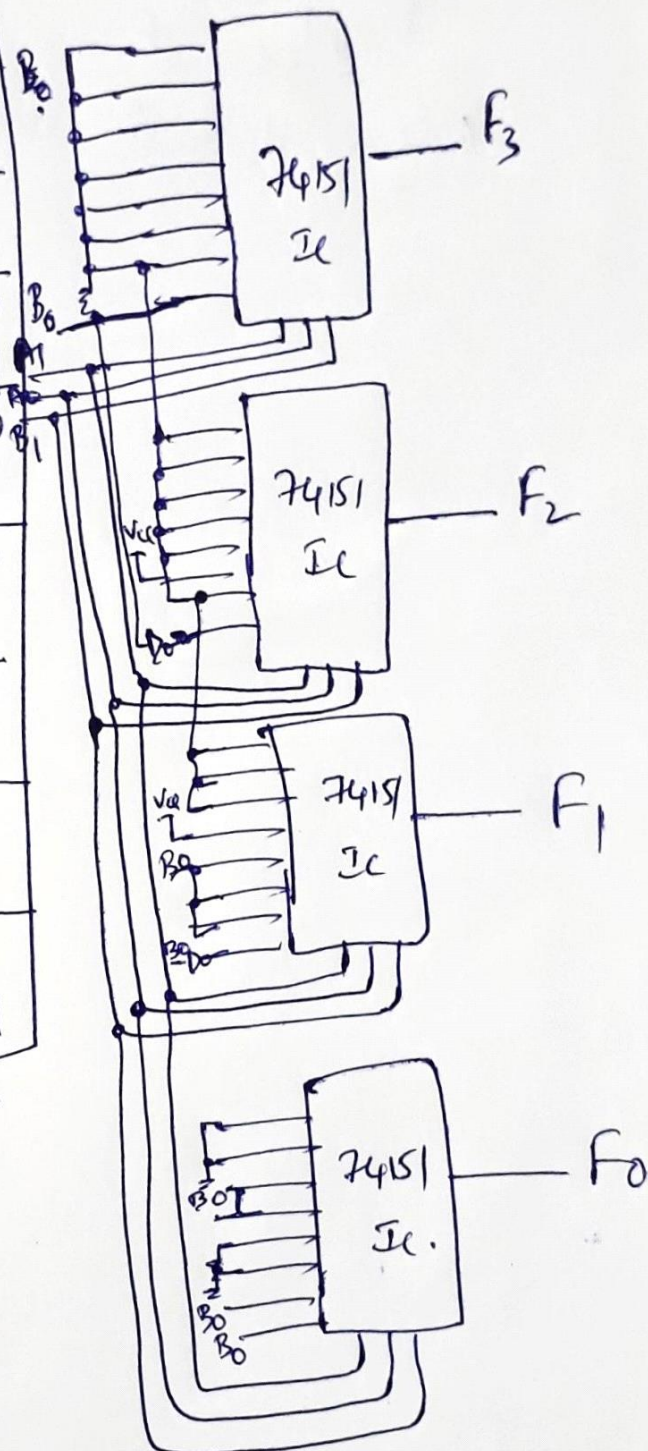 B0
74151
IC
F3
B0
A1
A0
B1
74151
IC
F2
Vcc
B0
74151
IC
F1
Vcc
B0
B0
74151
IC.
F0
B0
B0
B0